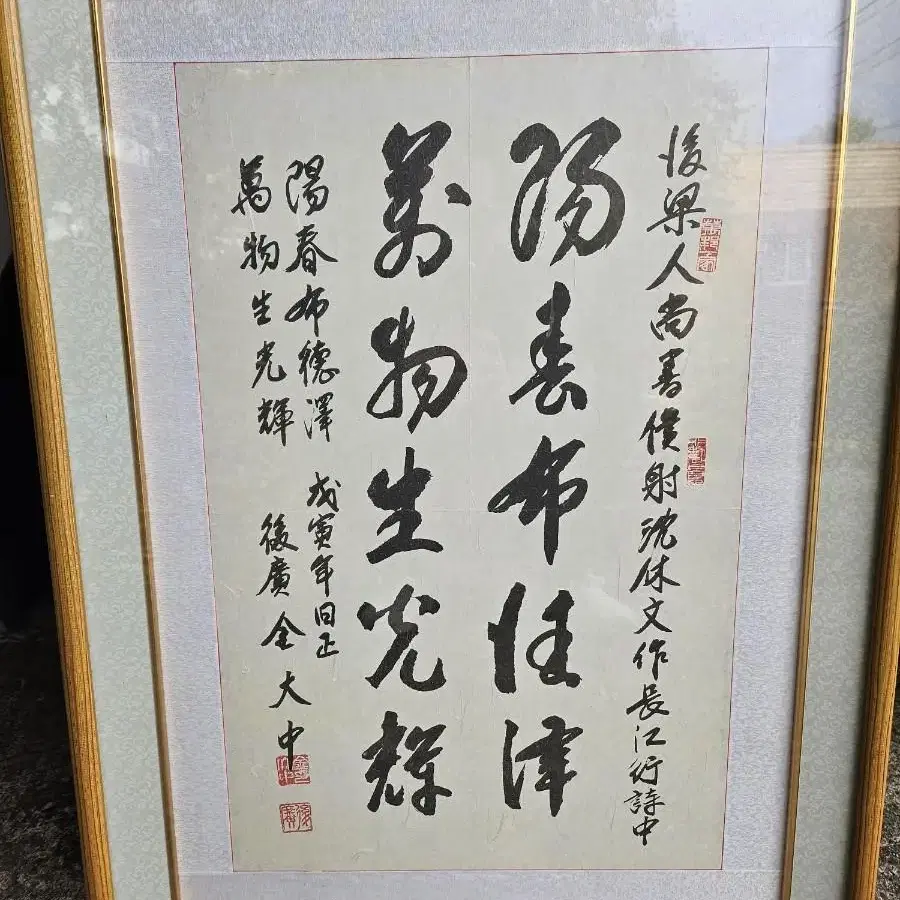 後梁人尚書僕射沈休文作長江行詩中
陽春布德澤
萬物生光輝
陽春布德澤
萬物生光輝
戊寅年旧正
後廣 金大中
金大中印
後廣